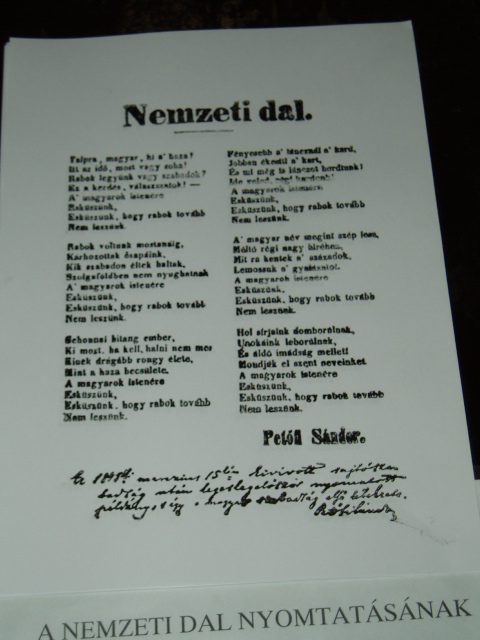 Nemzeti dal.
Talpra, magyar, hi a' haza!
Itt az idő, most vagy soha!
Rabok legyünk vagy szabadok?
Ez a kérdés, válasszatok! —
A' magyarok istenére
Esküszünk,
Esküszünk, hogy rabok tovább
Nem leszünk.
Rabok voltunk mostanáig,
Kárhozottak ősapáink,
Kik szabadon éltek haltak,
Szolgaföldben nem nyughatnak
A' magyarok istenére
Esküszünk,
Esküszünk, hogy rabok tovább
Nem leszünk.
Sehonnai bitang ember,
Ki most, ha kell, halni nem mer
Kinek drágább rongy élete,
Mint a haza becsülete.
A magyarok istenére
Esküszünk,
Esküszünk, hogy rabok tovább
Nem leszünk.
Fényesebb a' láncznál a' kard,
Jobban ékesíti a' kart,
És mi még is lánczot hordtunk!
Ide veled, régi kardunk!
A magyarok istenére
Esküszünk,
Esküszünk, hogy rabok tovább
Nem leszünk.
A' magyar név megint szép lesz,
Méltó régi nagy híréhez,
Mit rá kentek a' századok,
Lemossuk a' gyalázatot.
A magyarok istenére
Esküszünk,
Esküszünk, hogy rabok tovább
Nem leszünk.
Hol sírjaink domborulnak,
Unokáink leborulnak,
És áldó imádság mellett
Mondják el szent neveinket
A magyarok istenére
Esküszünk,
Esküszünk, hogy rabok tovább
Nem leszünk.
Petőfi Sándor.
Az márczius 15kén kivívott sajtó
szabadság után legeslegelőször nyomatott
példány, s így a magyar szabadság első
Petőfi Sándor
A NEMZETI DAL NYOMTATÁSÁNAK